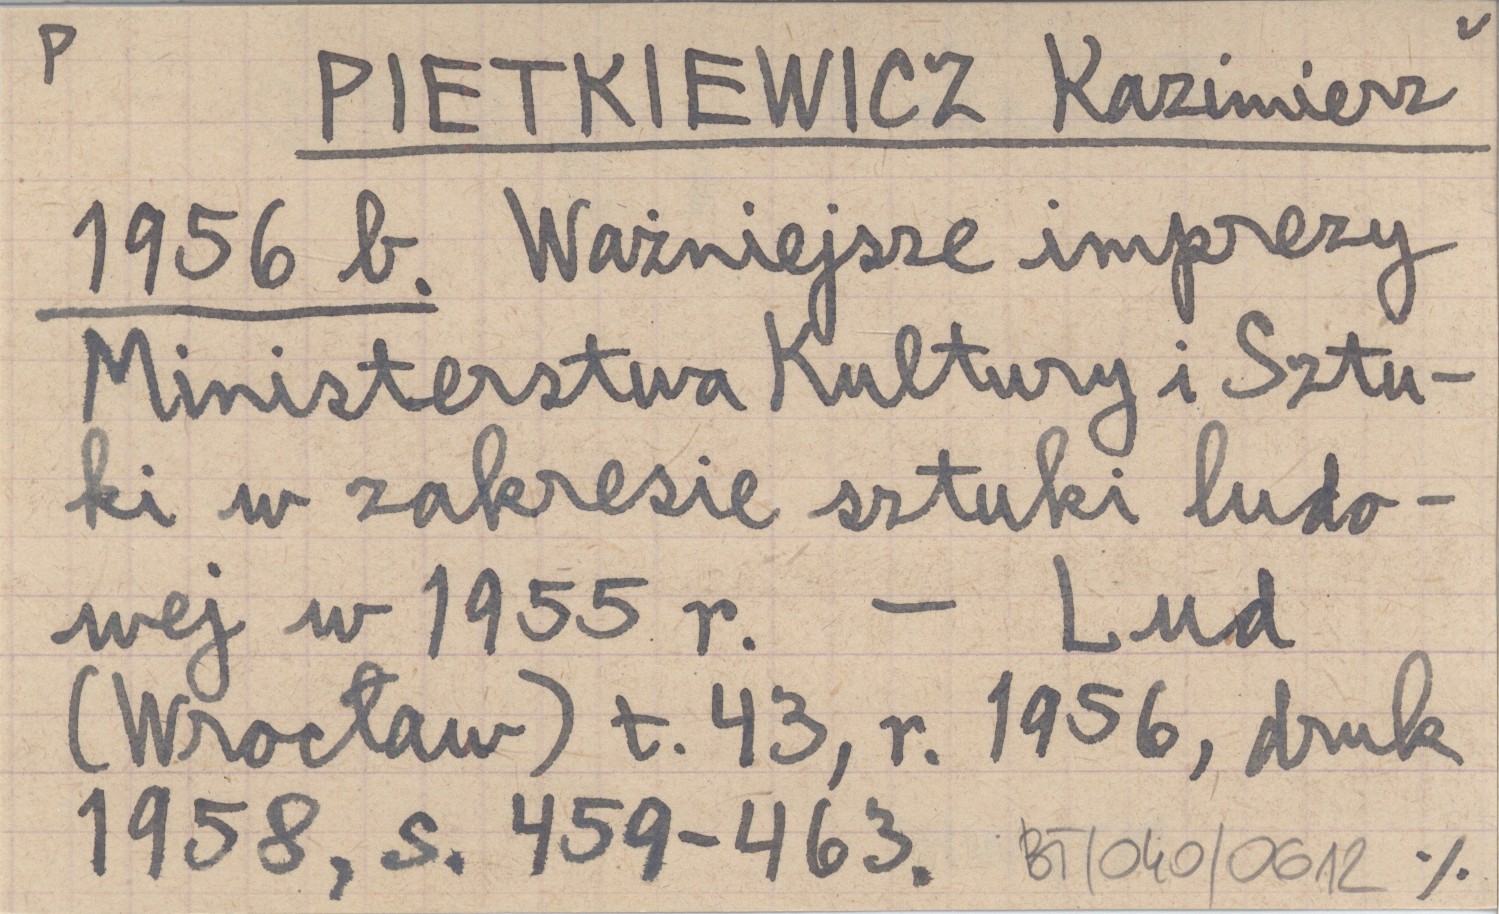 P
PIETKIEWICZ Kazimierz
1956 b. Ważniejsze imprezy
Ministerstwa Kultury i Sztu-
ki w zakresie sztuki ludo-
wej w 1955 r. — Lud
(Wrocław) t. 43, r. 1956, druk
1958, s. 459-463.
BT/040/0612 ./.